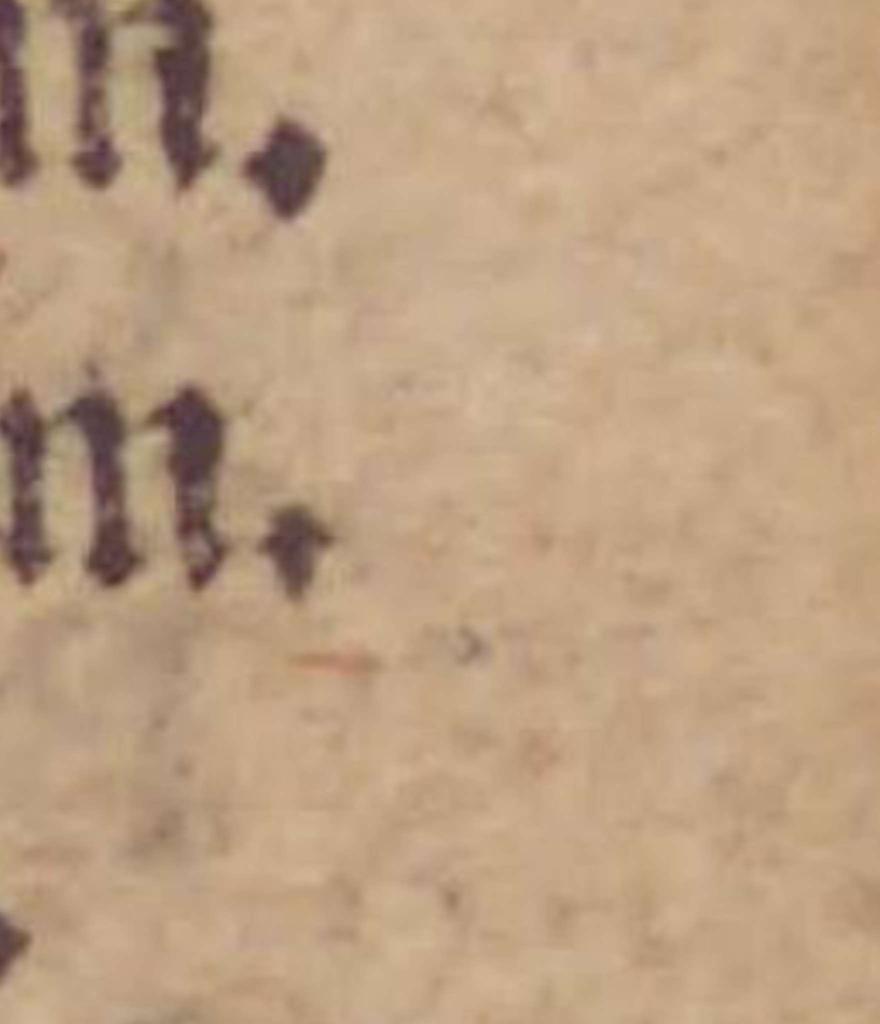 m.
m.